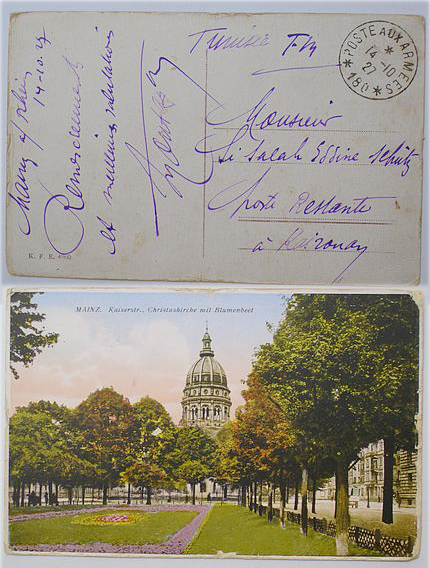 Tunisie F.M
* POSTE AUX ARMEES *
*
14 -10
27
180
Mainz s/Rhin
14-10-27
Remerciements
et meilleures salutations
Monsieur
Si Salah Eddine Schütz
Poste Restante
à Kairouan
K. F. E.
MAINZ. Kaiserstr., Christuskirche mit Blumenbeet